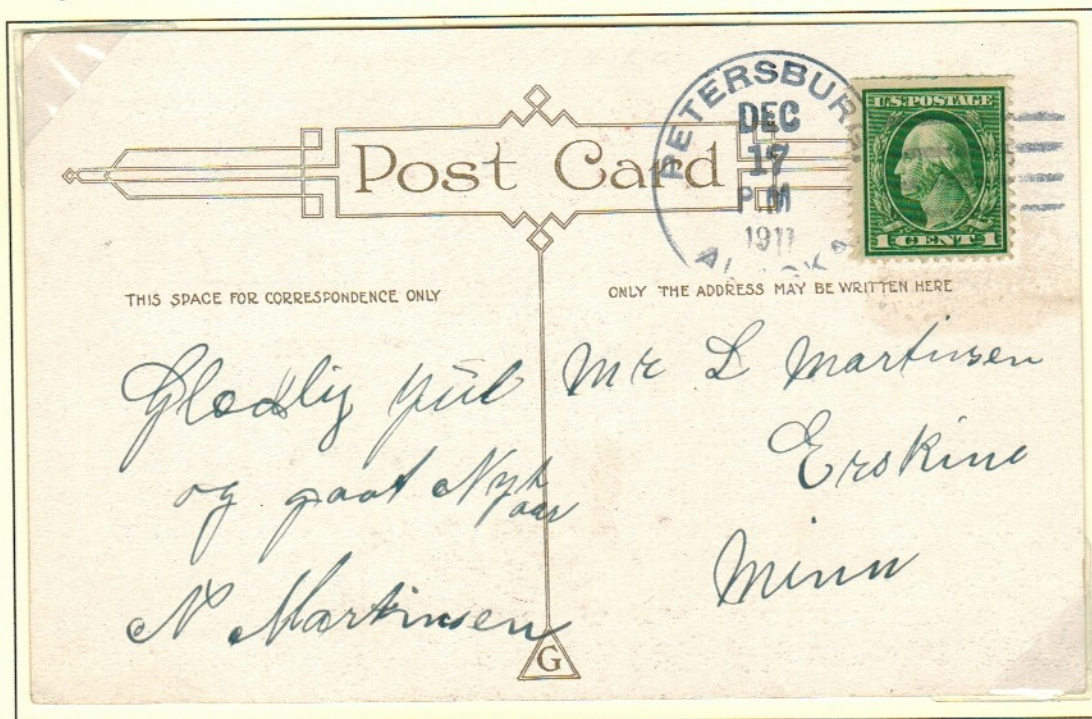 PETERSBURG
DEC
17
P.M
1911
ALASKA
U.S. POSTAGE
1 CENT 1
Post Card
THIS SPACE FOR CORRESPONDENCE ONLY
ONLY THE ADDRESS MAY BE WRITTEN HERE
Glædlig Yūl
og goot Nyt
aar
N Martinsen
Mr L Martinsen
Erskine
Minn
G